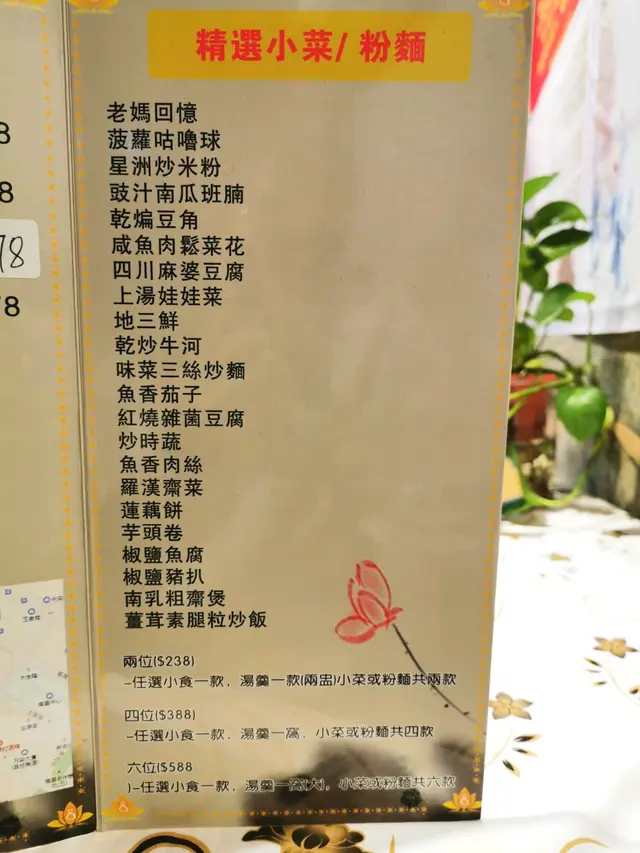 精選小菜/ 粉麵
老媽回憶
菠蘿咕嚕球
星洲炒米粉
豉汁南瓜班腩
乾煸豆角
咸魚肉鬆菜花
四川麻婆豆腐
上湯娃娃菜
地三鮮
乾炒牛河
味菜三絲炒麵
魚香茄子
紅燒雜菌豆腐
炒時蔬
魚香肉絲
羅漢齋菜
蓮藕餅
芋頭卷
椒鹽魚腐
椒鹽豬扒
南乳粗齋煲
薑茸素腿粒炒飯
兩位($238)
–任選小食一款，湯羹一款(兩盅)小菜或粉麵共兩款
四位($388)
–任選小食一款，湯羹一窩，小菜或粉麵共四款
六位($588
)–任選小食一款，湯羹一窩(大)，小菜或粉麵共六款
8
8
78
8